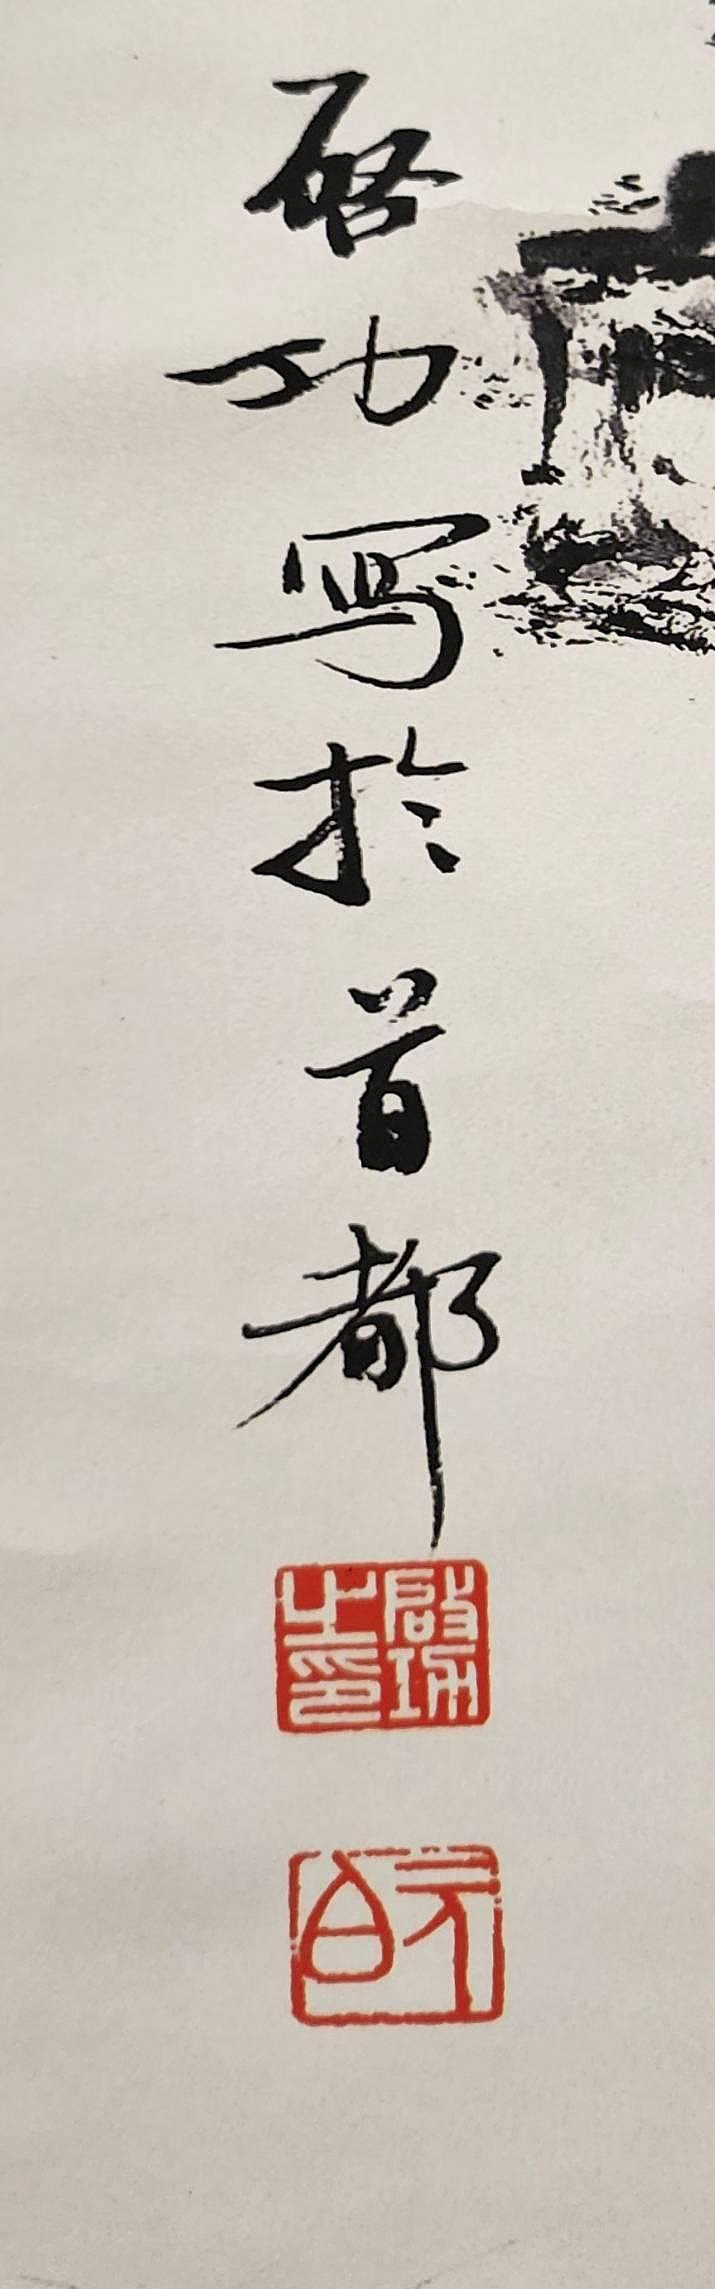 启功写於首都
启功之印
元白